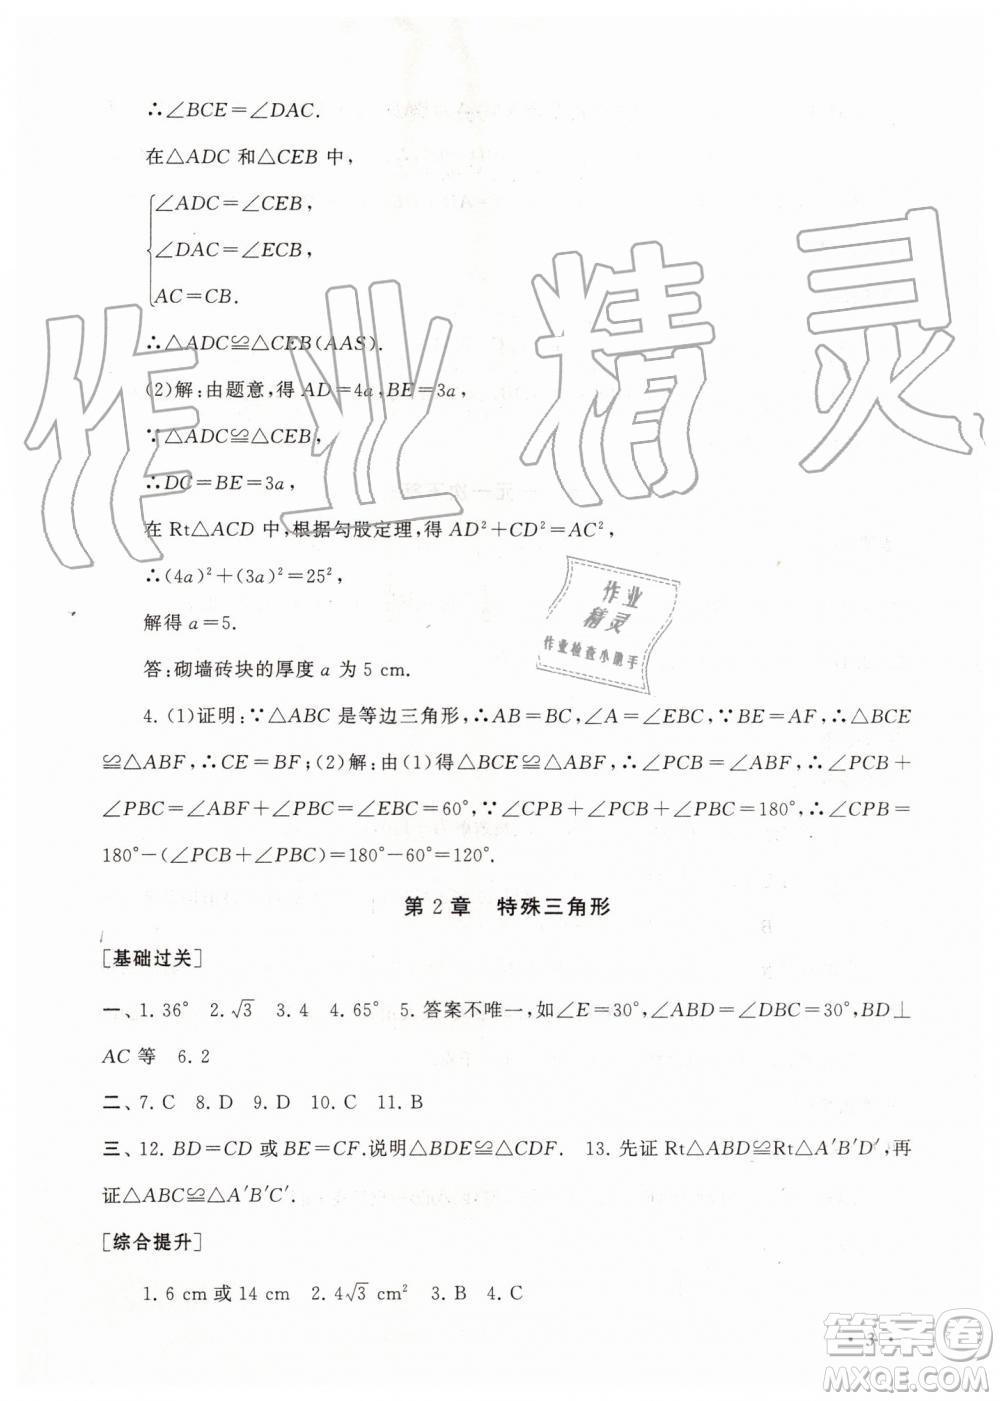 ∴∠BCE=∠DAC.
在△ADC 和△CEB 中，
∠ADC=∠CEB，
∠DAC=∠ECB，
AC=CB.
∴△ADC≌△CEB(AAS).
(2)解：由题意，得 AD=4a，BE=3a，
∵△ADC≌△CEB，
∴DC=BE=3a，
在 Rt△ACD 中，根据勾股定理，得 AD²+CD²=AC²，
∴(4a)²+(3a)²=25²，
解得 a=5.
答：砌墙砖块的厚度 a 为 5 cm.
4. (1)证明：∵△ABC 是等边三角形，∴AB=BC，∠A=∠EBC，∵BE=AF，∴△BCE
≌△ABF，∴CE=BF；(2)解：由(1)得△BCE≌△ABF，∴∠PCB=∠ABF，∴∠PCB+
∠PBC=∠ABF+∠PBC=∠ABC=60°，∵∠CPB+∠PCB+∠PBC=180°，∴∠CPB=
180°−(∠PCB+∠PBC)=180°−60°=120°.
第 2 章 特殊三角形
[基础过关]
一、1.36° 2.√3 3.4 4.65° 5. 答案不唯一，如∠E=30°，∠ABD=∠DBC=30°，BD⊥
AC 等 6.2
二、7. C 8. D 9. D 10. C 11. B
三、12. BD=CD 或 BE=CF. 说明△BDE≌△CDF. 13. 先证 Rt△ABD≌Rt△A′B′D′，再
证△ABC≌△A′B′C′.
[综合提升]
1. 6 cm 或 14 cm 2. 4√3 cm² 3. B 4. C
· 3 ·
作业精灵
作业
精灵
作业检查小助手
答案卷
MXQE.COM